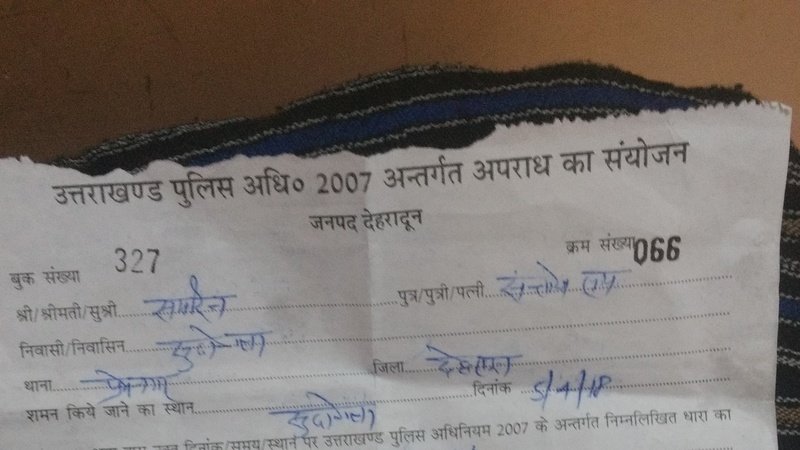 उत्तराखण्ड पुलिस अधि० 2007 अन्तर्गत अपराध का संयोजन
जनपद देहरादून
बुक संख्या 327 क्रम संख्या 066
श्री/श्रीमती/सुश्री पुत्र/पुत्री/पत्नी सन्तोष
निवासी/निवासिन
थाना प्रेमनगर जिला देहरादून
शमन किये जाने का स्थान दिनांक 5/4/18
दिनांक/समय/स्थान पर उत्तराखण्ड पुलिस अधिनियम 2007 के अन्तर्गत निम्नलिखित धारा का